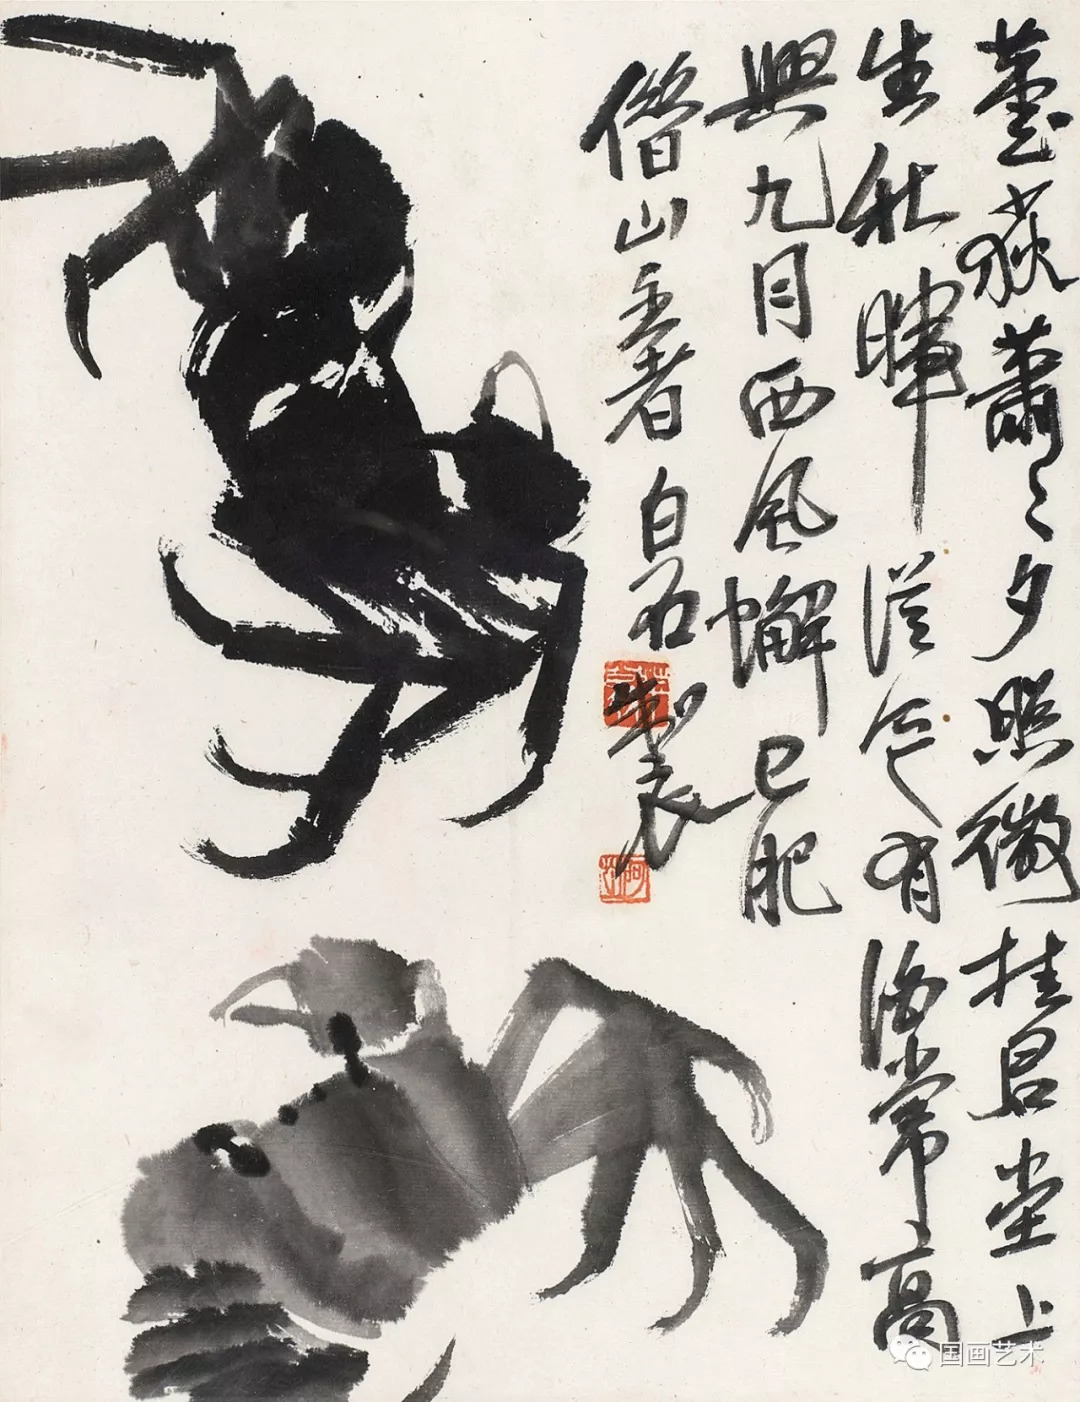 蘆荻蕭〻夕照微挂君堂上
生秋暉從今有酒常高
興九月西風蠏已肥
借山主者白石製
阿芝
国画艺术